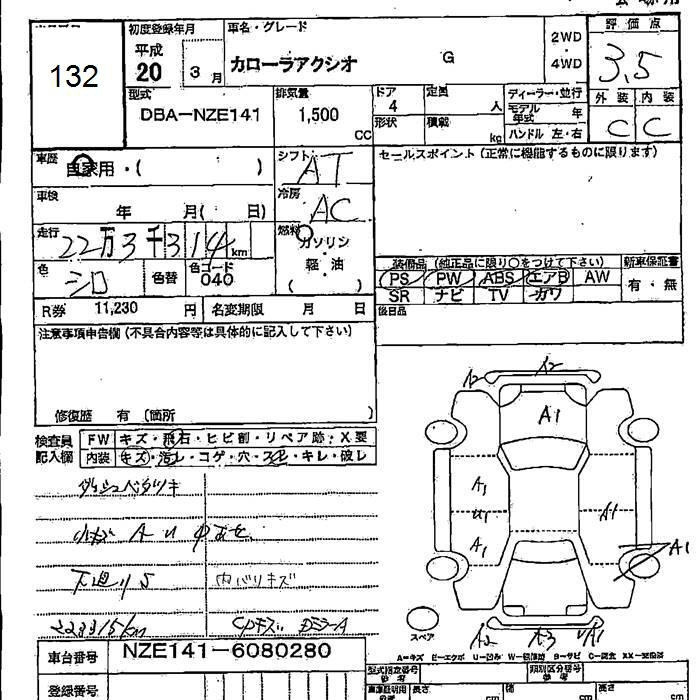 132
初度登録年月
平成
20
3 月
車名・グレード
カローラアクシオ
G
2WD
・
4WD
評価点
3.5
外装 内装
C C
型式
DBA-NZE141
排気量
1,500
CC
ドア
4
定員
人
形状
積載
kg
ディーラー・並行
モデル年式
年
ハンドル 左・右
車歴
自家用・( )
シフト
AT
セールスポイント (正常に機能するものに限ります)
車検
年 月( 日)
冷房
AC
走行
22万3千314km
燃料
ガソリン
軽・油
( )
色
シロ
色替
色コード
040
装備品 (純正品に限り○をつけて下さい)
新車保証書
PS PW ABS エアB AW
有・無
SR ナビ TV カワ
後日品
R券
11,230 円
名変期限 月 日
注意事項申告欄 (不具合内容等は具体的に記入して下さい)
修復歴 有 (箇所 )
検査員
記入欄
FW キズ・飛石・ヒビ割・リペア跡・X要
内装 キズ・汚レ・コゲ・穴・スレ・キレ・破レ
ダッシュベタツキ
小キズ A U
下廻りS
内バリキズ
223315km
A2
A2
A1
A1
U1
A1
A1
A1
A2
スペア
A-キズ E-エクボ U-凹み
車台番号
NZE141-6080280
登録番号
型式指定番号
類別区分番号
参考
長さ
cm